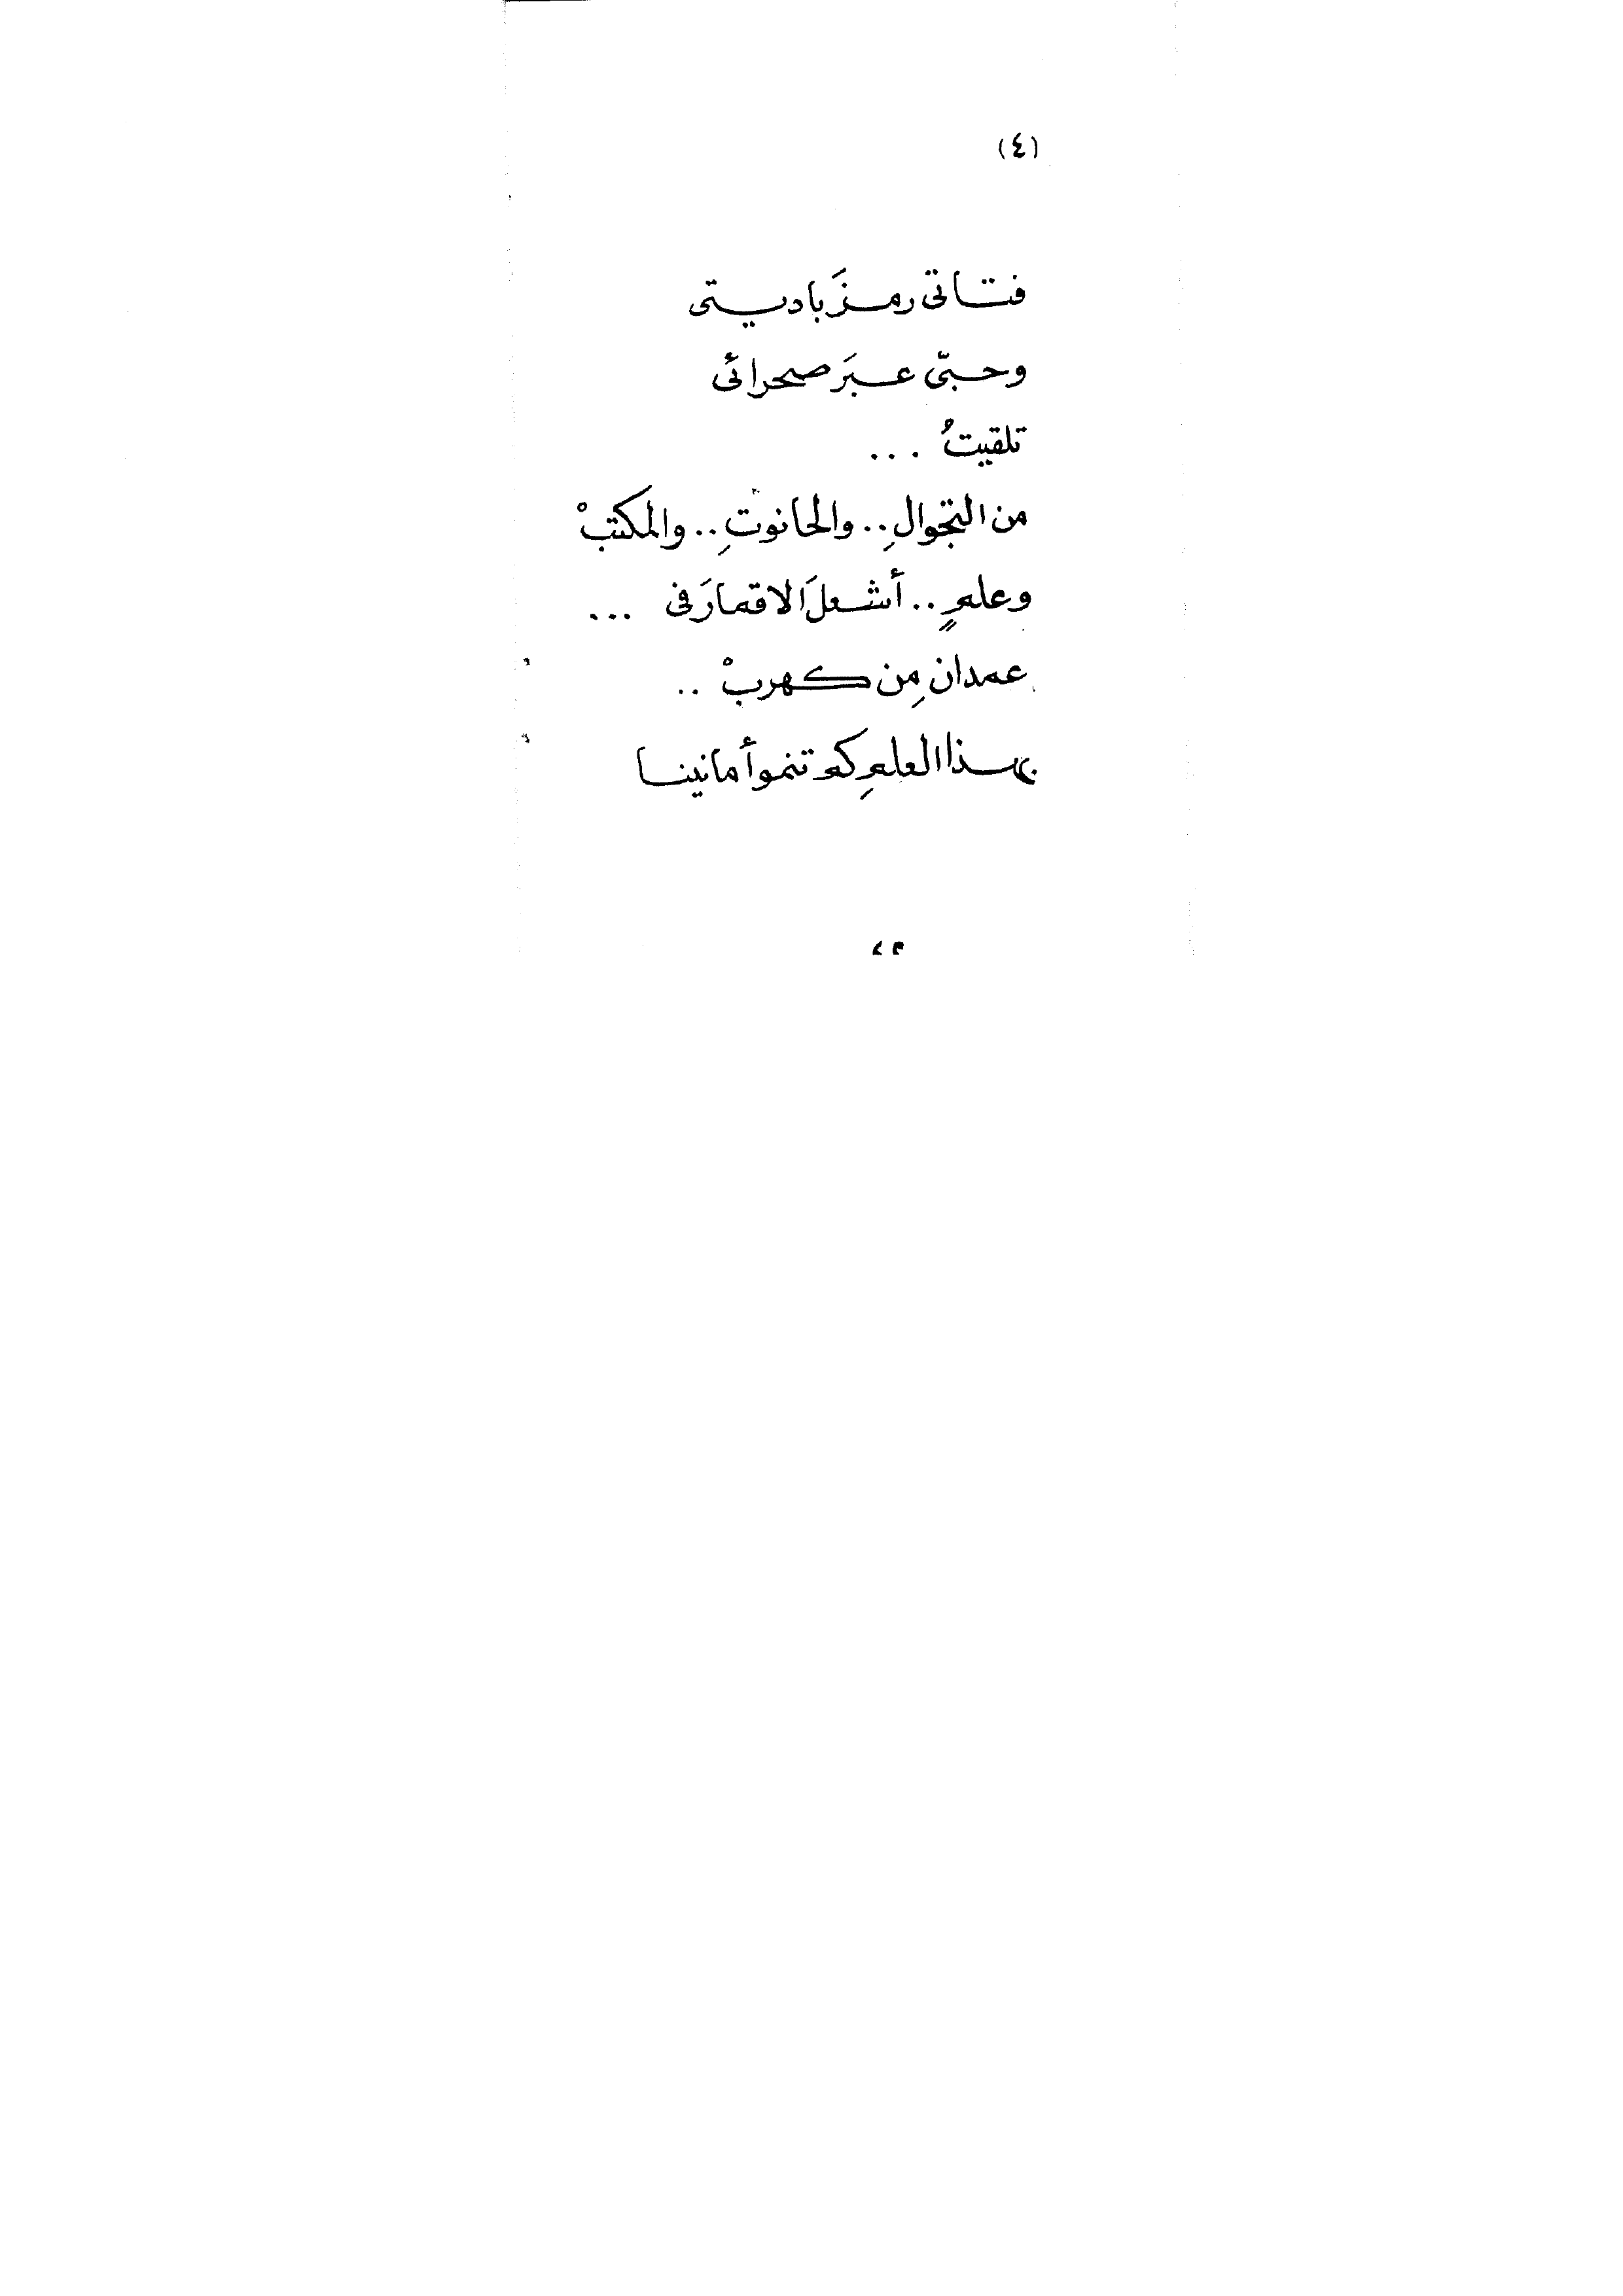 (٤)
فتاتى رمزَ باديتى
وحبّى عبرَ صحرائى
تلقيتُ ...
من التجوالِ .. والحانوتِ .. والمكتبْ
وعلمٍ .. أشعلَ الاقمارَ فى ...
عمدان مِن كهربْ ..
بهذا العلمِ كم تنمو أمانينا